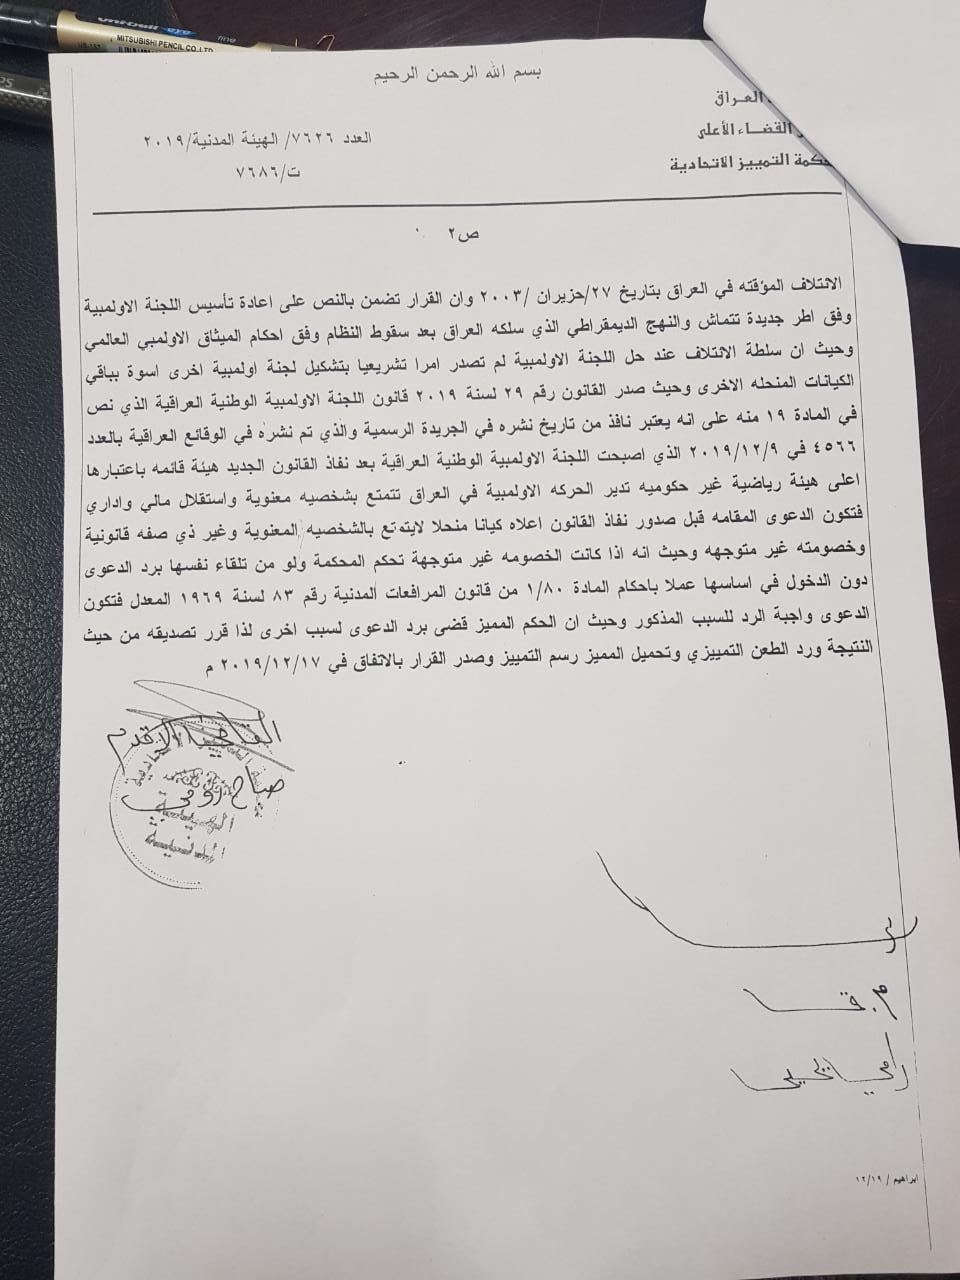 uni-ball eye fine
MITSUBISHI PENCIL CO.,LTD
بسم الله الرحمن الرحيم
العراق
القضاء الأعلى
محكمة التمييز الاتحادية
العدد ٧٦٢٦/ الهيئة المدنية/٢٠١٩
ت/٧٦٨٦
ص٢
الائتلاف المؤقته في العراق بتاريخ ٢٧/حزيران /٢٠٠٣ وان القرار تضمن بالنص على اعادة تأسيس اللجنة الاولمبية
وفق اطر جديدة تتماش والنهج الديمقراطي الذي سلكه العراق بعد سقوط النظام وفق احكام الميثاق الاولمبي العالمي
وحيث ان سلطة الائتلاف عند حل اللجنة الاولمبية لم تصدر امرا تشريعيا بتشكيل لجنة اولمبية اخرى اسوة بباقي
الكيانات المنحله الاخرى وحيث صدر القانون رقم ٢٩ لسنة ٢٠١٩ قانون اللجنة الاولمبية الوطنية العراقية الذي نص
في المادة ١٩ منه على انه يعتبر نافذ من تاريخ نشره في الجريدة الرسمية والذي تم نشره في الوقائع العراقية بالعدد
٤٥٦٦ في ٢٠١٩/١٢/٩ الذي اصبحت اللجنة الاولمبية الوطنية العراقية بعد نفاذ القانون الجديد هيئة قائمه باعتبارها
اعلى هيئة رياضية غير حكوميه تدير الحركه الاولمبية في العراق تتمتع بشخصيه معنوية واستقلال مالي واداري
فتكون الدعوى المقامه قبل صدور نفاذ القانون اعلاه كيانا منحلا لايتمتع بالشخصيه المعنوية وغير ذي صفه قانونية
وخصومته غير متوجهه وحيث انه اذا كانت الخصومه غير متوجهة تحكم المحكمة ولو من تلقاء نفسها برد الدعوى
دون الدخول في اساسها عملا باحكام المادة ١/٨٠ من قانون المرافعات المدنية رقم ٨٣ لسنة ١٩٦٩ المعدل فتكون
الدعوى واجبة الرد للسبب المذكور وحيث ان الحكم المميز قضى برد الدعوى لسبب اخرى لذا قرر تصديقه من حيث
النتيجة ورد الطعن التمييزي وتحميل المميز رسم التمييز وصدر القرار بالاتفاق في ٢٠١٩/١٢/١٧ م
القاضي الاقدم
صباح رومي
الهيئة
المدنية
ابراهيم / ١٢/١٩